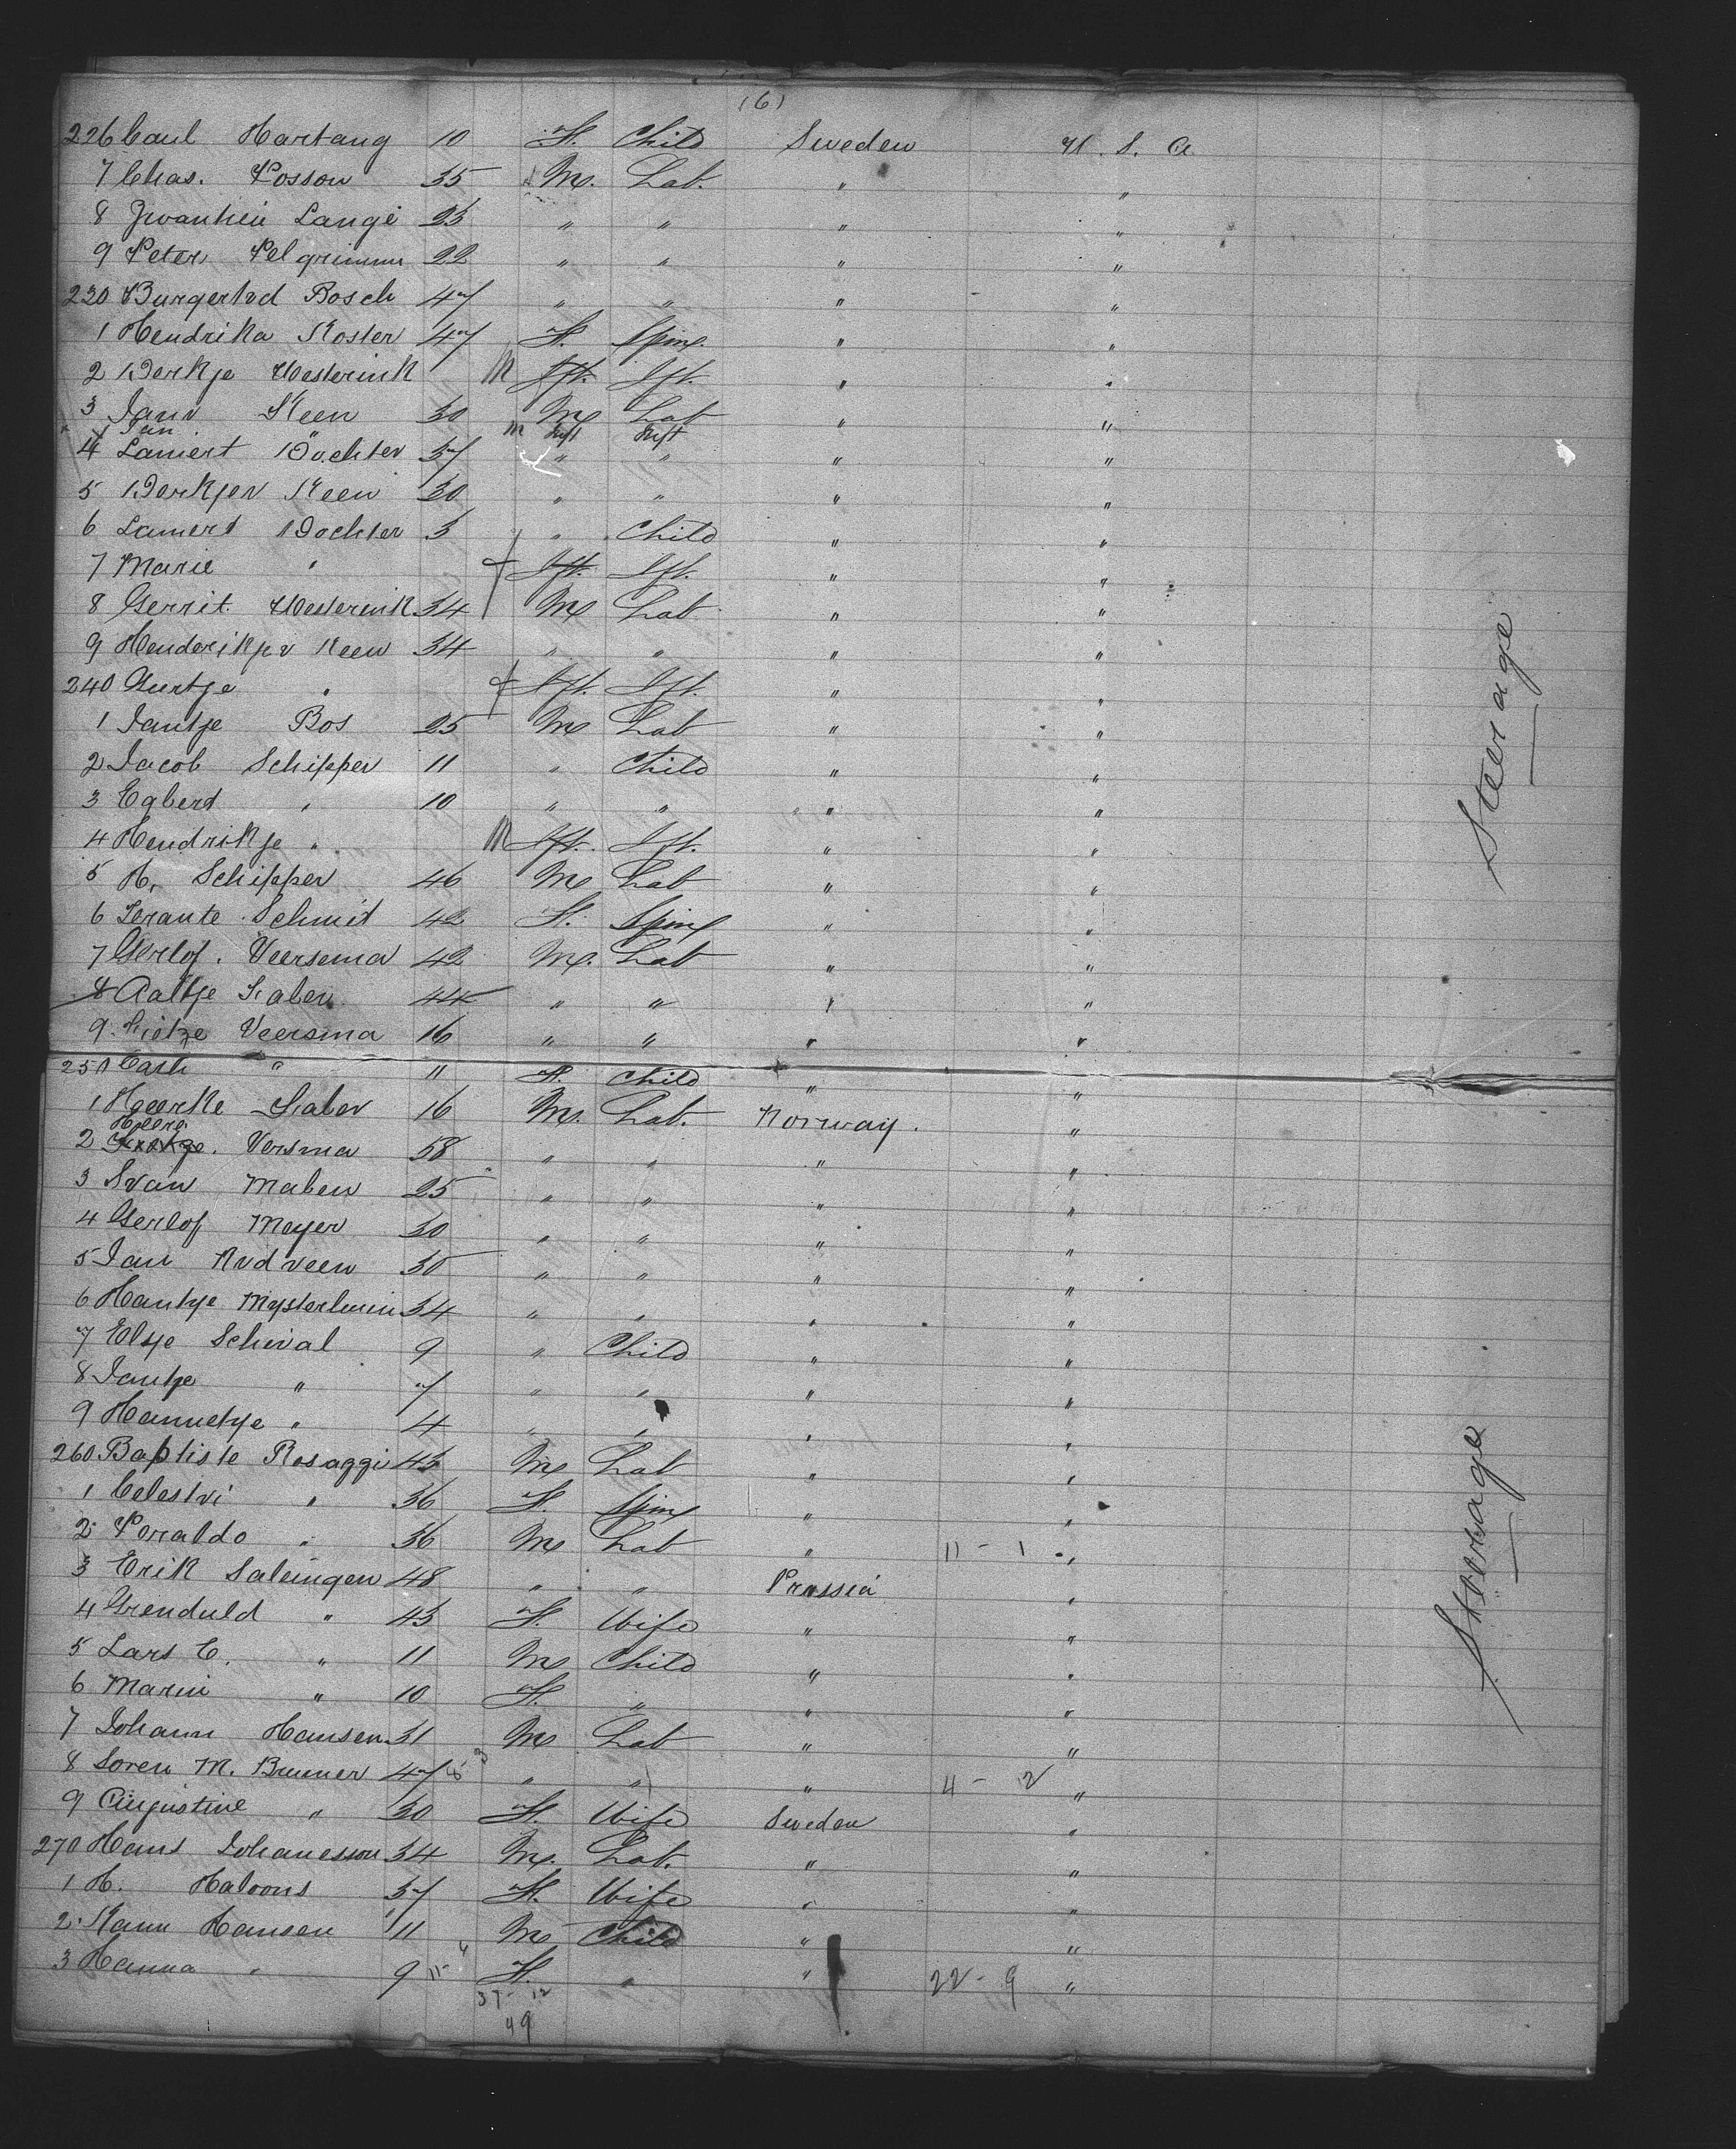 (6)
226 Carl Hartang 10 F. Child Sweden U. S. A.
7 Chas. Posson 35 M. Lab. " "
8 Zwantien Lange 23 " " " "
9 Peter Pelgrimm 22 " " " "
230 Burgertvd Bosch 47 " " " "
1 Hendrika Koster 47 F. Spins. " "
2 Derkje Westerink M Ift. Ift. " "
3 Jans Keen 30 M Lab " "
Jan " m Inft Inft
4 Lamert Dochter 37 " " " "
5 Derkjen Keen 30 " " " "
6 Lamert Dochter 3 " Child " "
7 Marie " f Ift. Ift. " "
8 Gerrit Westerink 34 M Lab " "
9 Henderikjev Keen 34 " " " "
240 Geertje " f Ift. Ift. " "
1 Jantje Bos 25 M Lab " "
2 Jacob Schipper 11 " Child " "
3 Egbert " 10 " " " "
4 Hendrikje " M Ift. Ift. " "
5 H. Schipper 46 M Lab " "
6 Schmit 42 F. Spins " "
7 Gerlof. Veersema 42 M. Lab " "
8 Aaltje 44 " " " "
9 Veersma 16 " " " "
250 " 11 F. Child " "
1 Heerke 16 M. Lab. Norway. "
2 Versma 58 " " " "
3 Svan Maben 25 " " " "
4 Gerlof Meyer 30 " " " "
5 Jan Nvdveen 30 " " " "
6 Hantje 34 " " " "
7 Eltje Schival 9 " Child " "
8 Jantje " 7 " " " "
9 Hannetje " 4 " " " "
260 Baptiste Rosaggi 43 M Lab " "
1 Celestvi " 36 F. Spins " "
2 Poraldo " 36 M Lab " 11 - 1 "
3 Erik Saleingen 48 " " Prussia "
4 Grenduld " 43 F. Wife " "
5 Lars C. " 11 M Child " "
6 Marin " 10 F. " " "
7 Johann Hansen 31 M Lab " "
8 Soren M. Brunner 47 " " " 4 - 2 "
9 Augustine " 30 F. Wife Sweden "
270 Hans Johanesson 34 M. Lab. " "
1 H. Haloons 37 F. Wife " "
2 Kann Hansen 11 M Child " "
3 Hanna " 9 F. " " 22 - 9 "
37 - 12
49
Steerage
Steerage